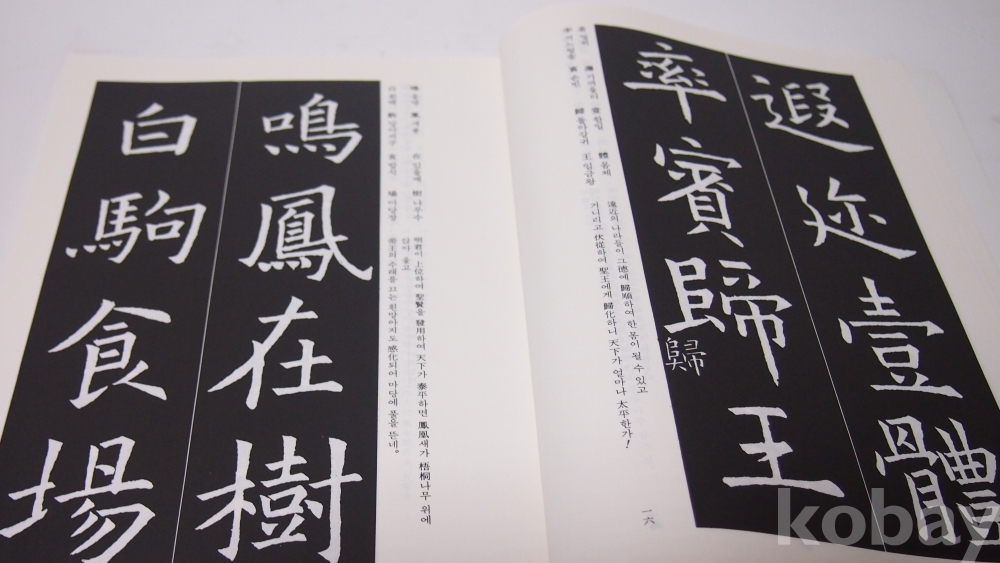 遐迩壹體
率賓歸王
歸
遐 멀하 邇 가까울이 壹 한일 體 몸체
率 거느릴솔 賓 손빈 歸 돌아갈귀 王 임금왕
遠近의 나라들이 그 德에 歸順하여 한 몸이 될 수 있고
거느리고 伏從하여 聖王에게 歸化하니 天下가 얼마나 太平한가!
一六
鳴鳳在樹
白駒食場
鳴 울명 鳳 새봉 在 있을재 樹 나무수
白 흰백 駒 망아지구 食 밥식 場 마당장
明君이 上位하여 聖賢을 發用하여 天下가 泰平하면 鳳凰새가 梧桐나무 위에
앉아 울고
帝王의 수레를 끄는 흰망아지도 感化되어 마당에 풀을 뜯네。
kobay